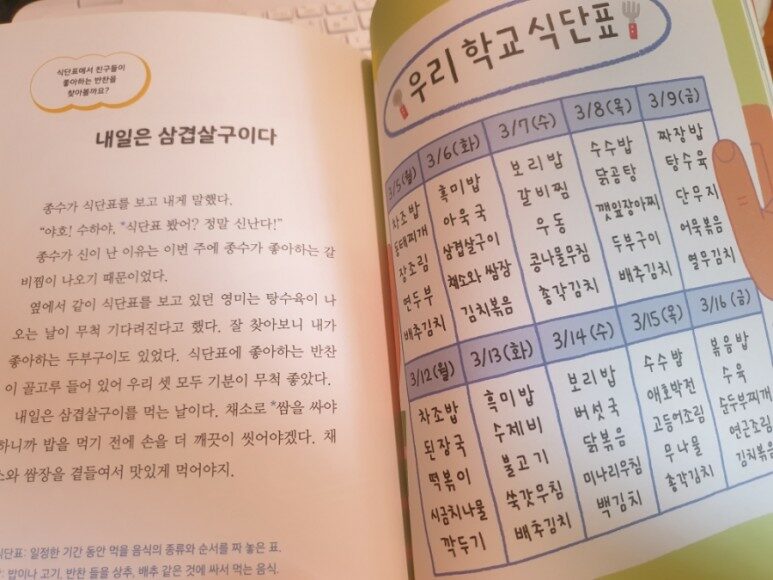 식단표에서 친구들이
좋아하는 반찬을
찾아볼까요?
내일은 삼겹살구이다
종수가 식단표를 보고 내게 말했다.
“야호! 수하야, *식단표 봤어? 정말 신난다!”
종수가 신이 난 이유는 이번 주에 종수가 좋아하는 갈
비찜이 나오기 때문이었다.
옆에서 같이 식단표를 보고 있던 영미는 탕수육이 나
오는 날이 무척 기다려진다고 했다. 잘 찾아보니 내가
좋아하는 두부구이도 있었다. 식단표에 좋아하는 반찬
이 골고루 들어 있어 우리 셋 모두 기분이 무척 좋았다.
내일은 삼겹살구이를 먹는 날이다. 채소로 *쌈을 싸야
하니까 밥을 먹기 전에 손을 더 깨끗이 씻어야겠다. 채
소와 쌈장을 곁들여서 맛있게 먹어야지.
식단표: 일정한 기간 동안 먹을 음식의 종류와 순서를 짜 놓은 표.
밥이나 고기, 반찬 들을 상추, 배추 같은 것에 싸서 먹는 음식.
우리 학교 식단표
3/5(월)
차조밥
동태찌개
장조림
연두부
배추김치
3/6(화)
흑미밥
아욱국
삼겹살구이
채소와 쌈장
김치볶음
3/7(수)
보리밥
갈비찜
우동
콩나물무침
총각김치
3/8(목)
수수밥
닭곰탕
깻잎장아찌
두부구이
배추김치
3/9(금)
짜장밥
탕수육
단무지
어묵볶음
열무김치
3/12(월)
차조밥
된장국
떡볶이
시금치나물
깍두기
3/13(화)
흑미밥
수제비
불고기
쑥갓무침
배추김치
3/14(수)
보리밥
버섯국
닭볶음
미나리무침
백김치
3/15(목)
수수밥
애호박전
고등어조림
무나물
총각김치
3/16(금)
볶음밥
수육
순두부찌개
연근조림
김치볶음